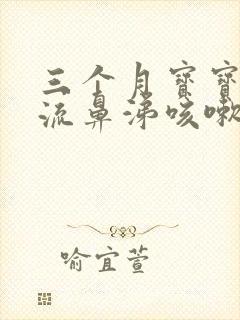 三个月寶寶
流鼻涕咳嗽
喻宜萱